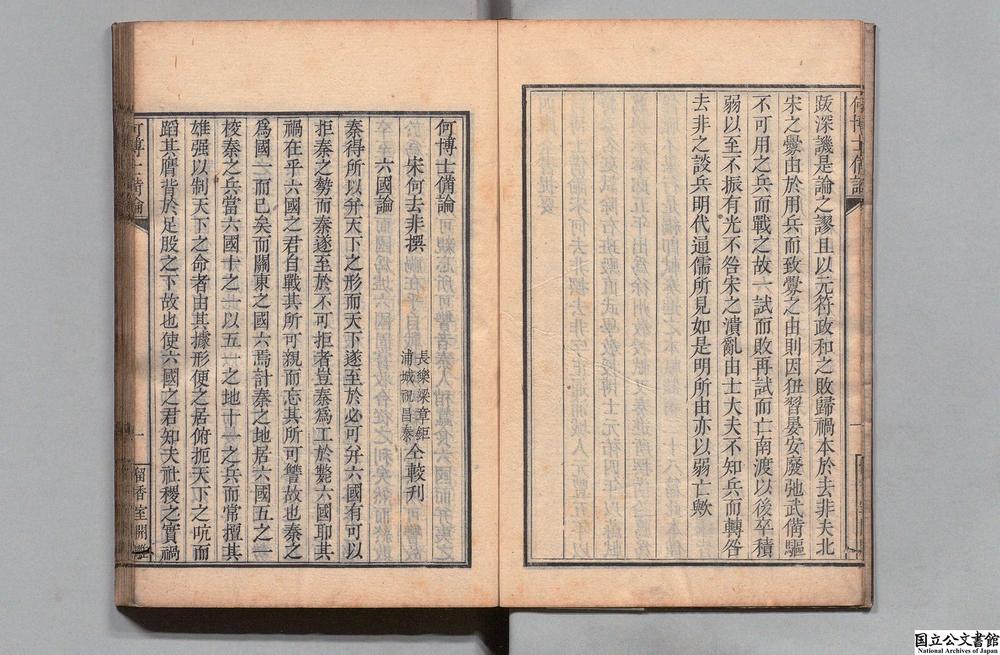 跋深譏是論之謬且以元符政和之敗歸禍本於去非夫北
宋之釁由於用兵而致釁之由則因狃習晏安廢弛武備驅
不可用之兵而戰之故一試而敗再試而亡南渡以後卒積
弱以至不振有光不咎宋之潰亂由士大夫不知兵而轉咎
去非之談兵明代通儒所見如是明所由亦以弱亡歟
何博士備論
宋何去非撰
長樂梁章鉅
浦城祝昌泰
仝較刊
六國論
秦得所以弁天下之形而天下遂至於必可弁六國有可以
拒秦之勢而秦遂至於不可拒者豈秦為工於斃六國耶其
禍在乎六國之君自戰其所可親而忘其所可讐故也秦之
爲國一而已矣而關東之國六焉計秦之地居六國五之一
校秦之兵當六國十之一以五一之地十一之兵而常擅其
雄强以制天下之命者由其據形便之居俯扼天下之吭而
蹈其膺背於足股之下故也使六國之君知夫社稷之實禍
何博士備論
一
留香室開雕
国立公文書館
National Archives of Japan